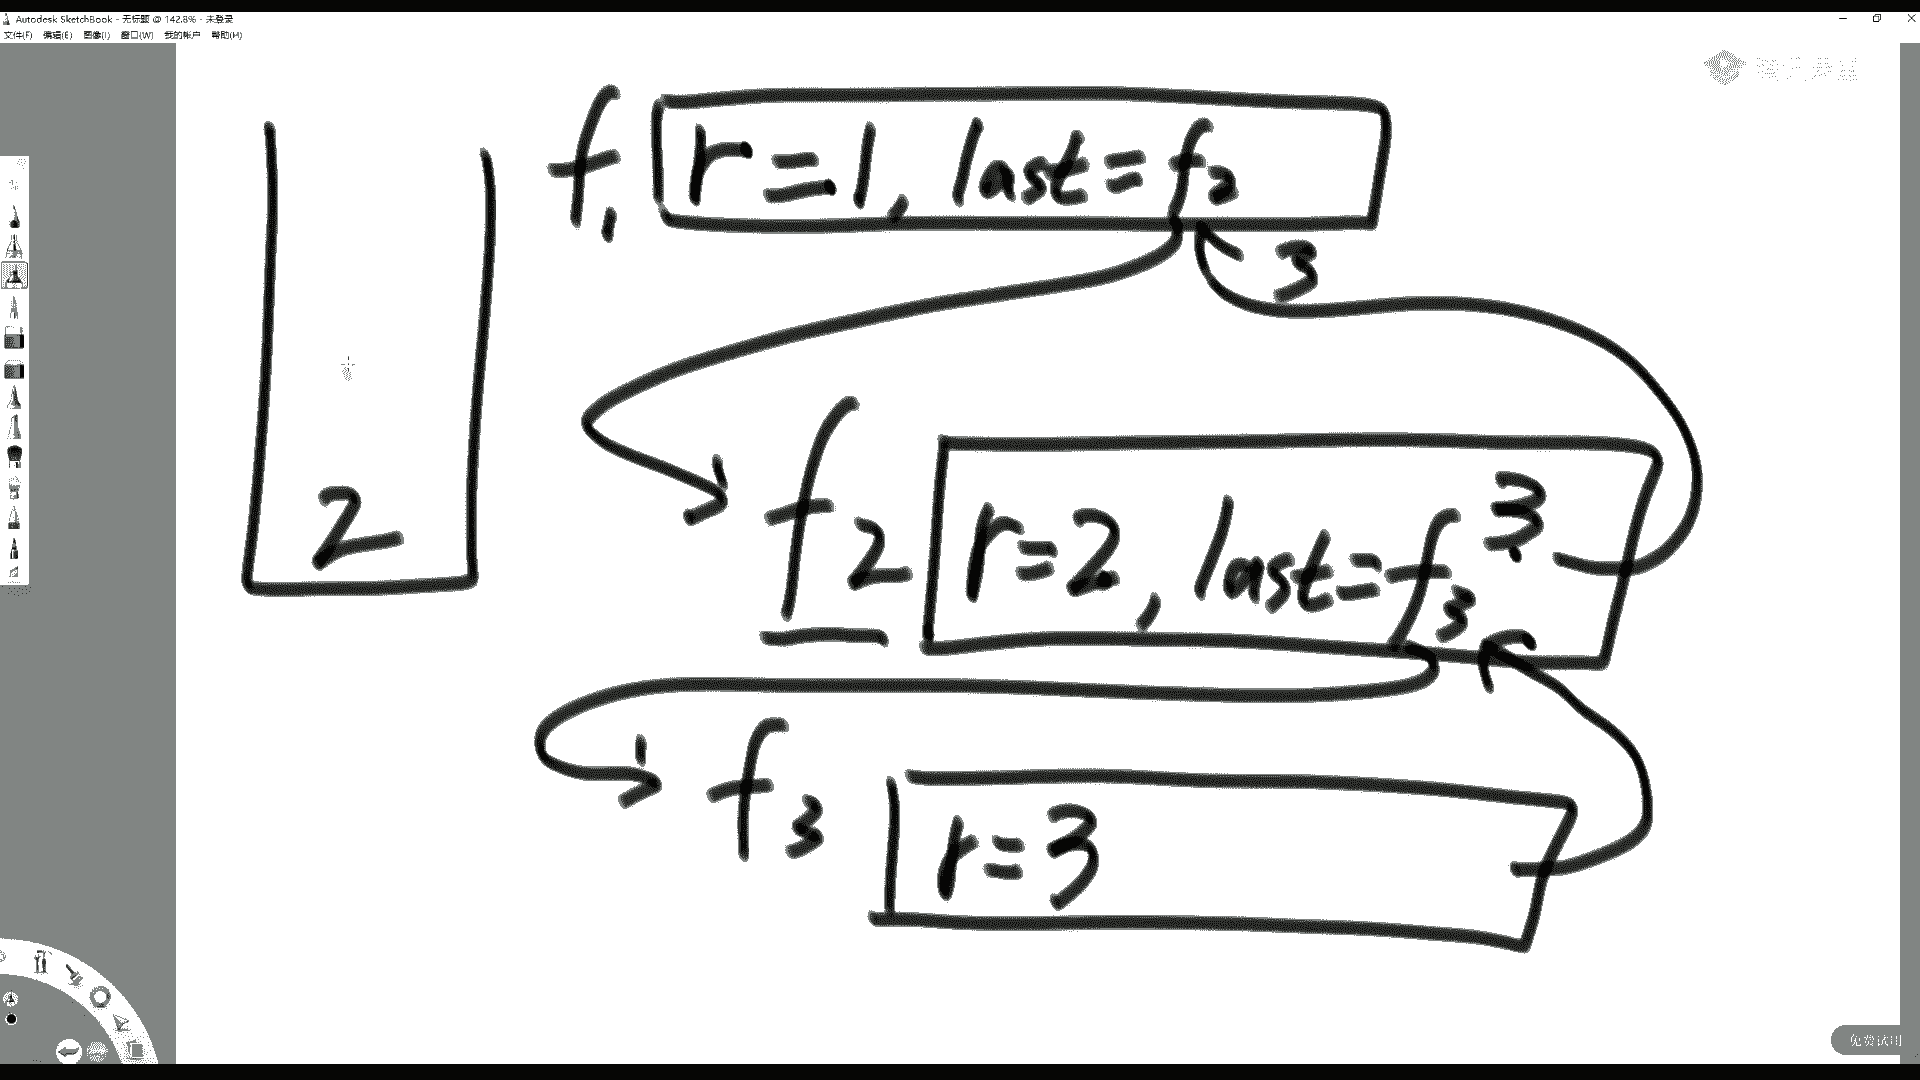 Autodesk SketchBook - 无标题 @ 142.8% - 未登录
文件(F) 编辑(E) 图像(I) 窗口(W) 我的帐户 帮助(H)
f1 r=1, last=f2
3
2
f2 r=2, last=f3 3
f3 r=3
免费试用